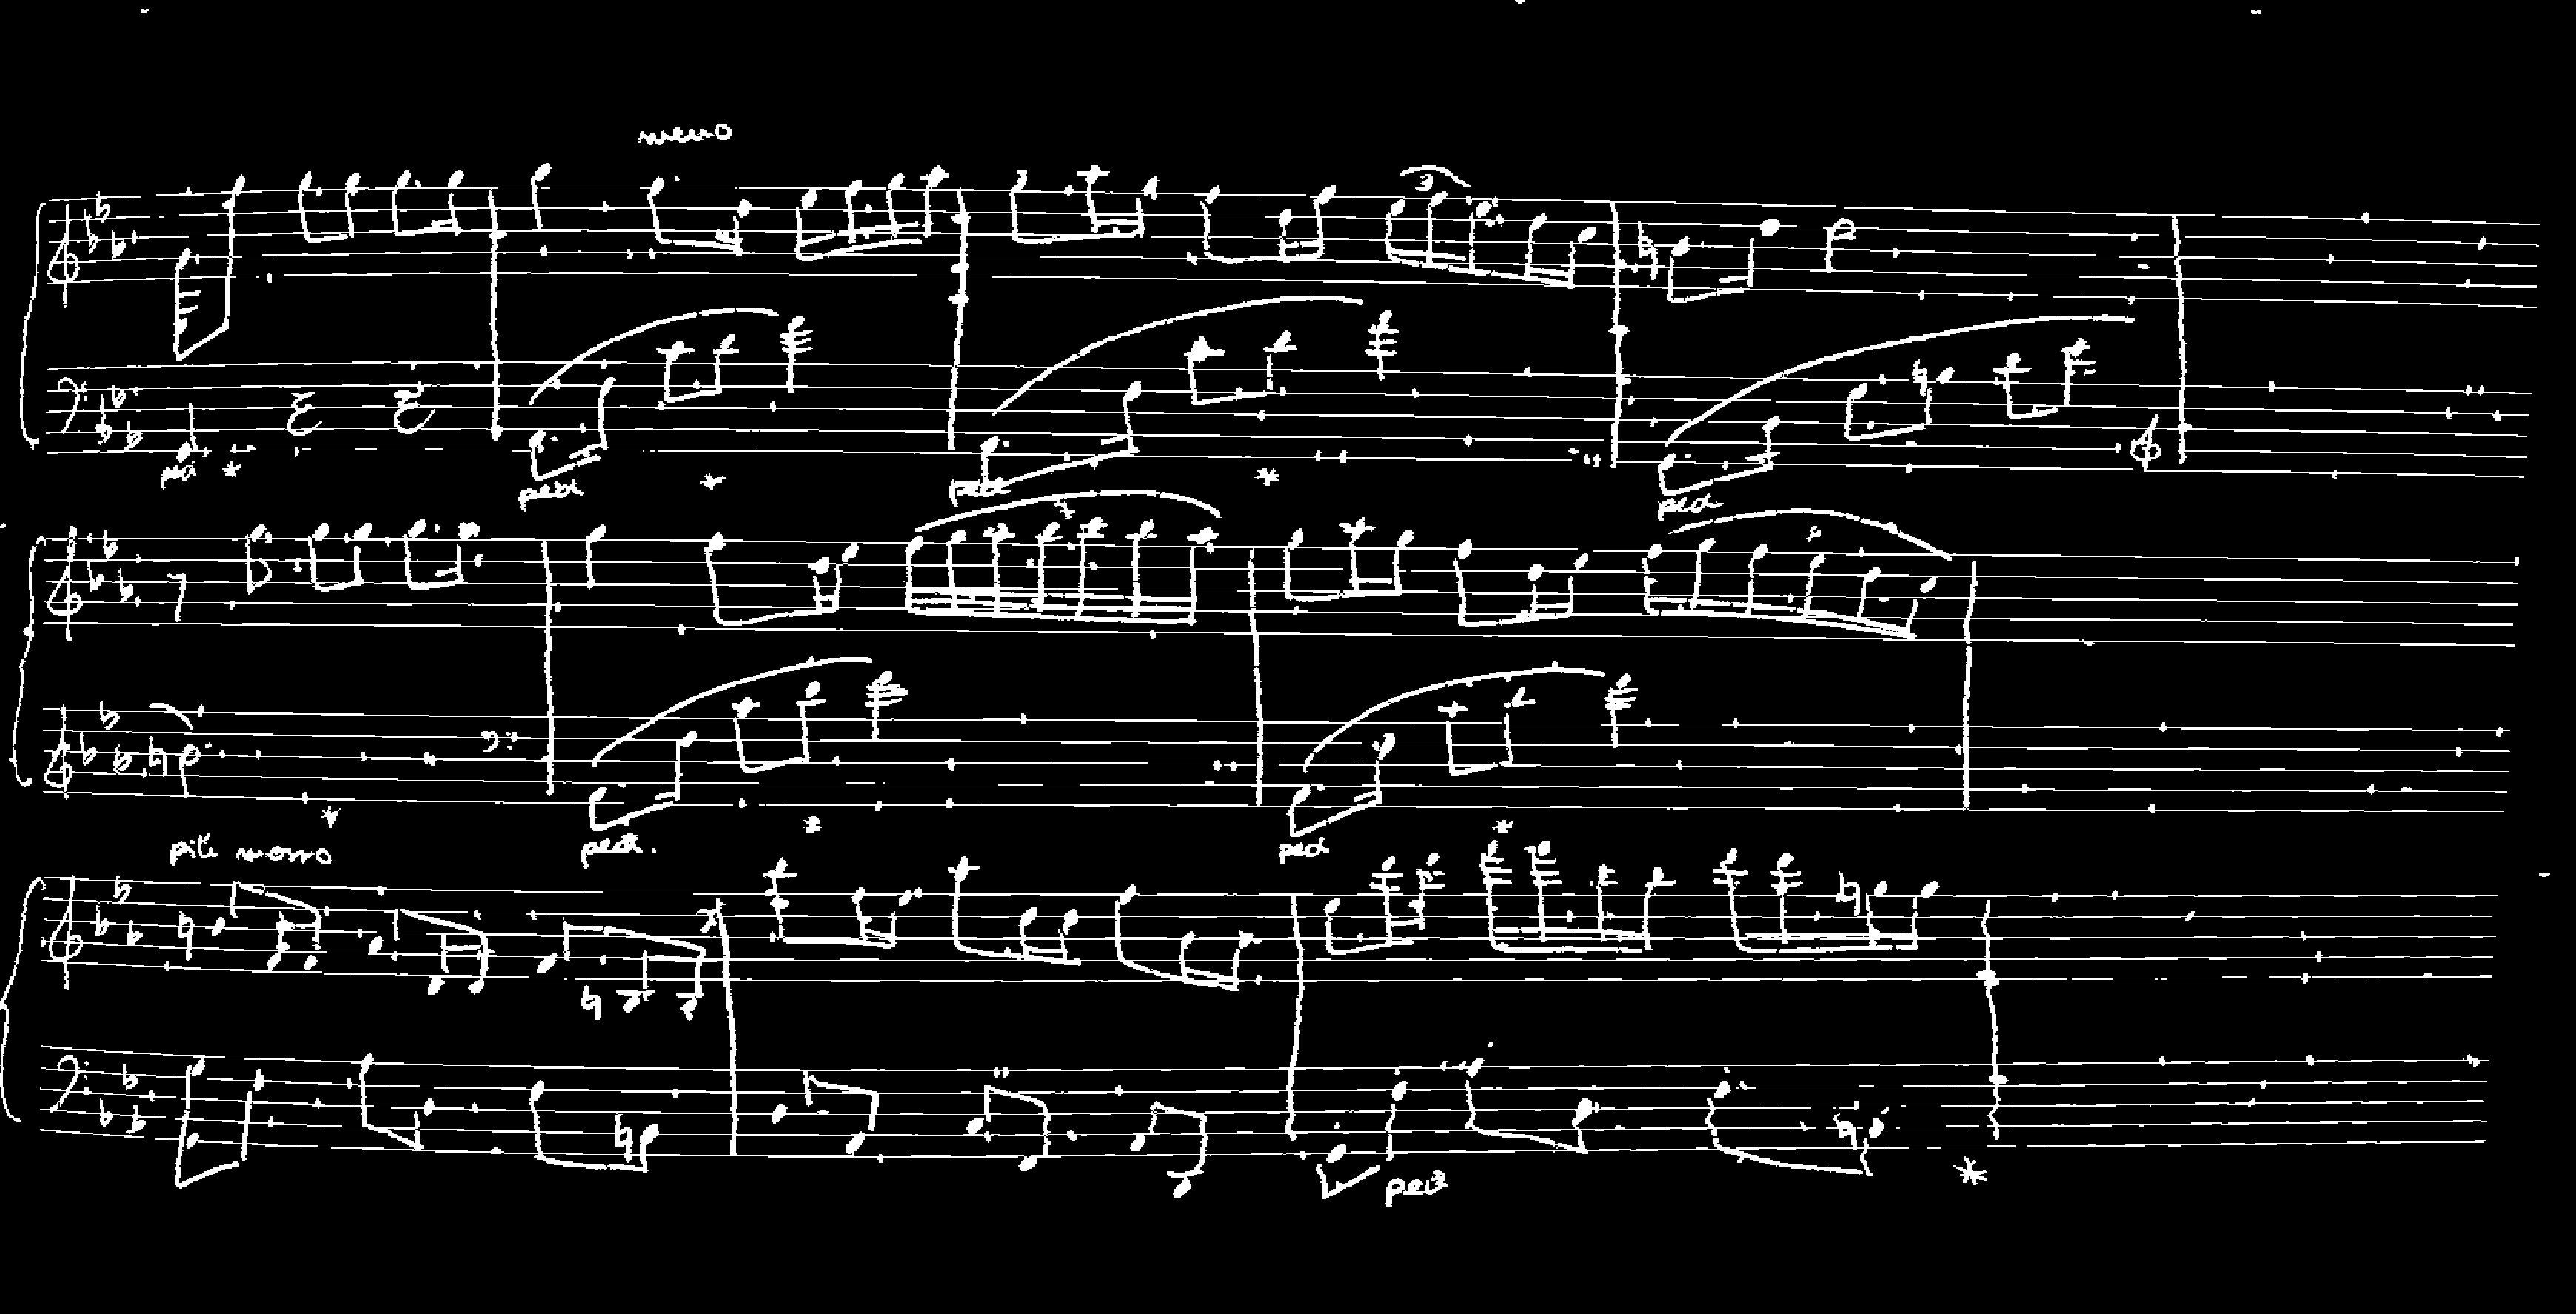 meno
3
ped *
ped * ped * ped
7 6
* ped. * ped *
più mosso
ped *